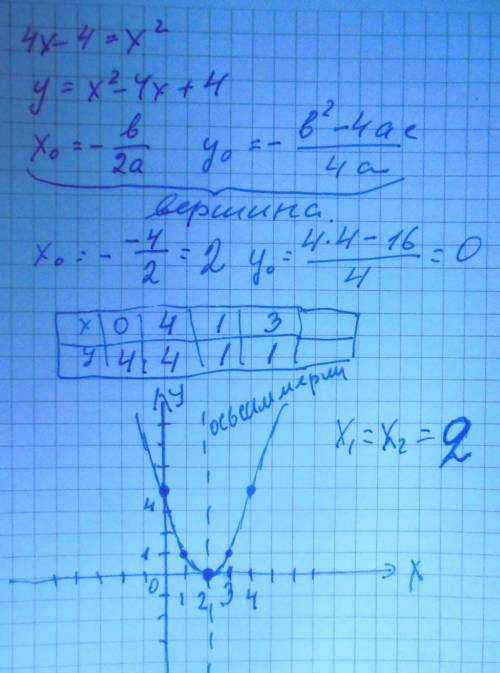 4x-4=x²
y=x²-4x+4
x₀=-в/2a y₀=-в²-4ac/4a
вершина.
x₀=--4/2=2 y₀=4·4-16/4=0
x 0 4 1 3
y 4 4 1 1
y
ось симметрии
x₁=x₂=2
4
1
0 1 2 3 4 x